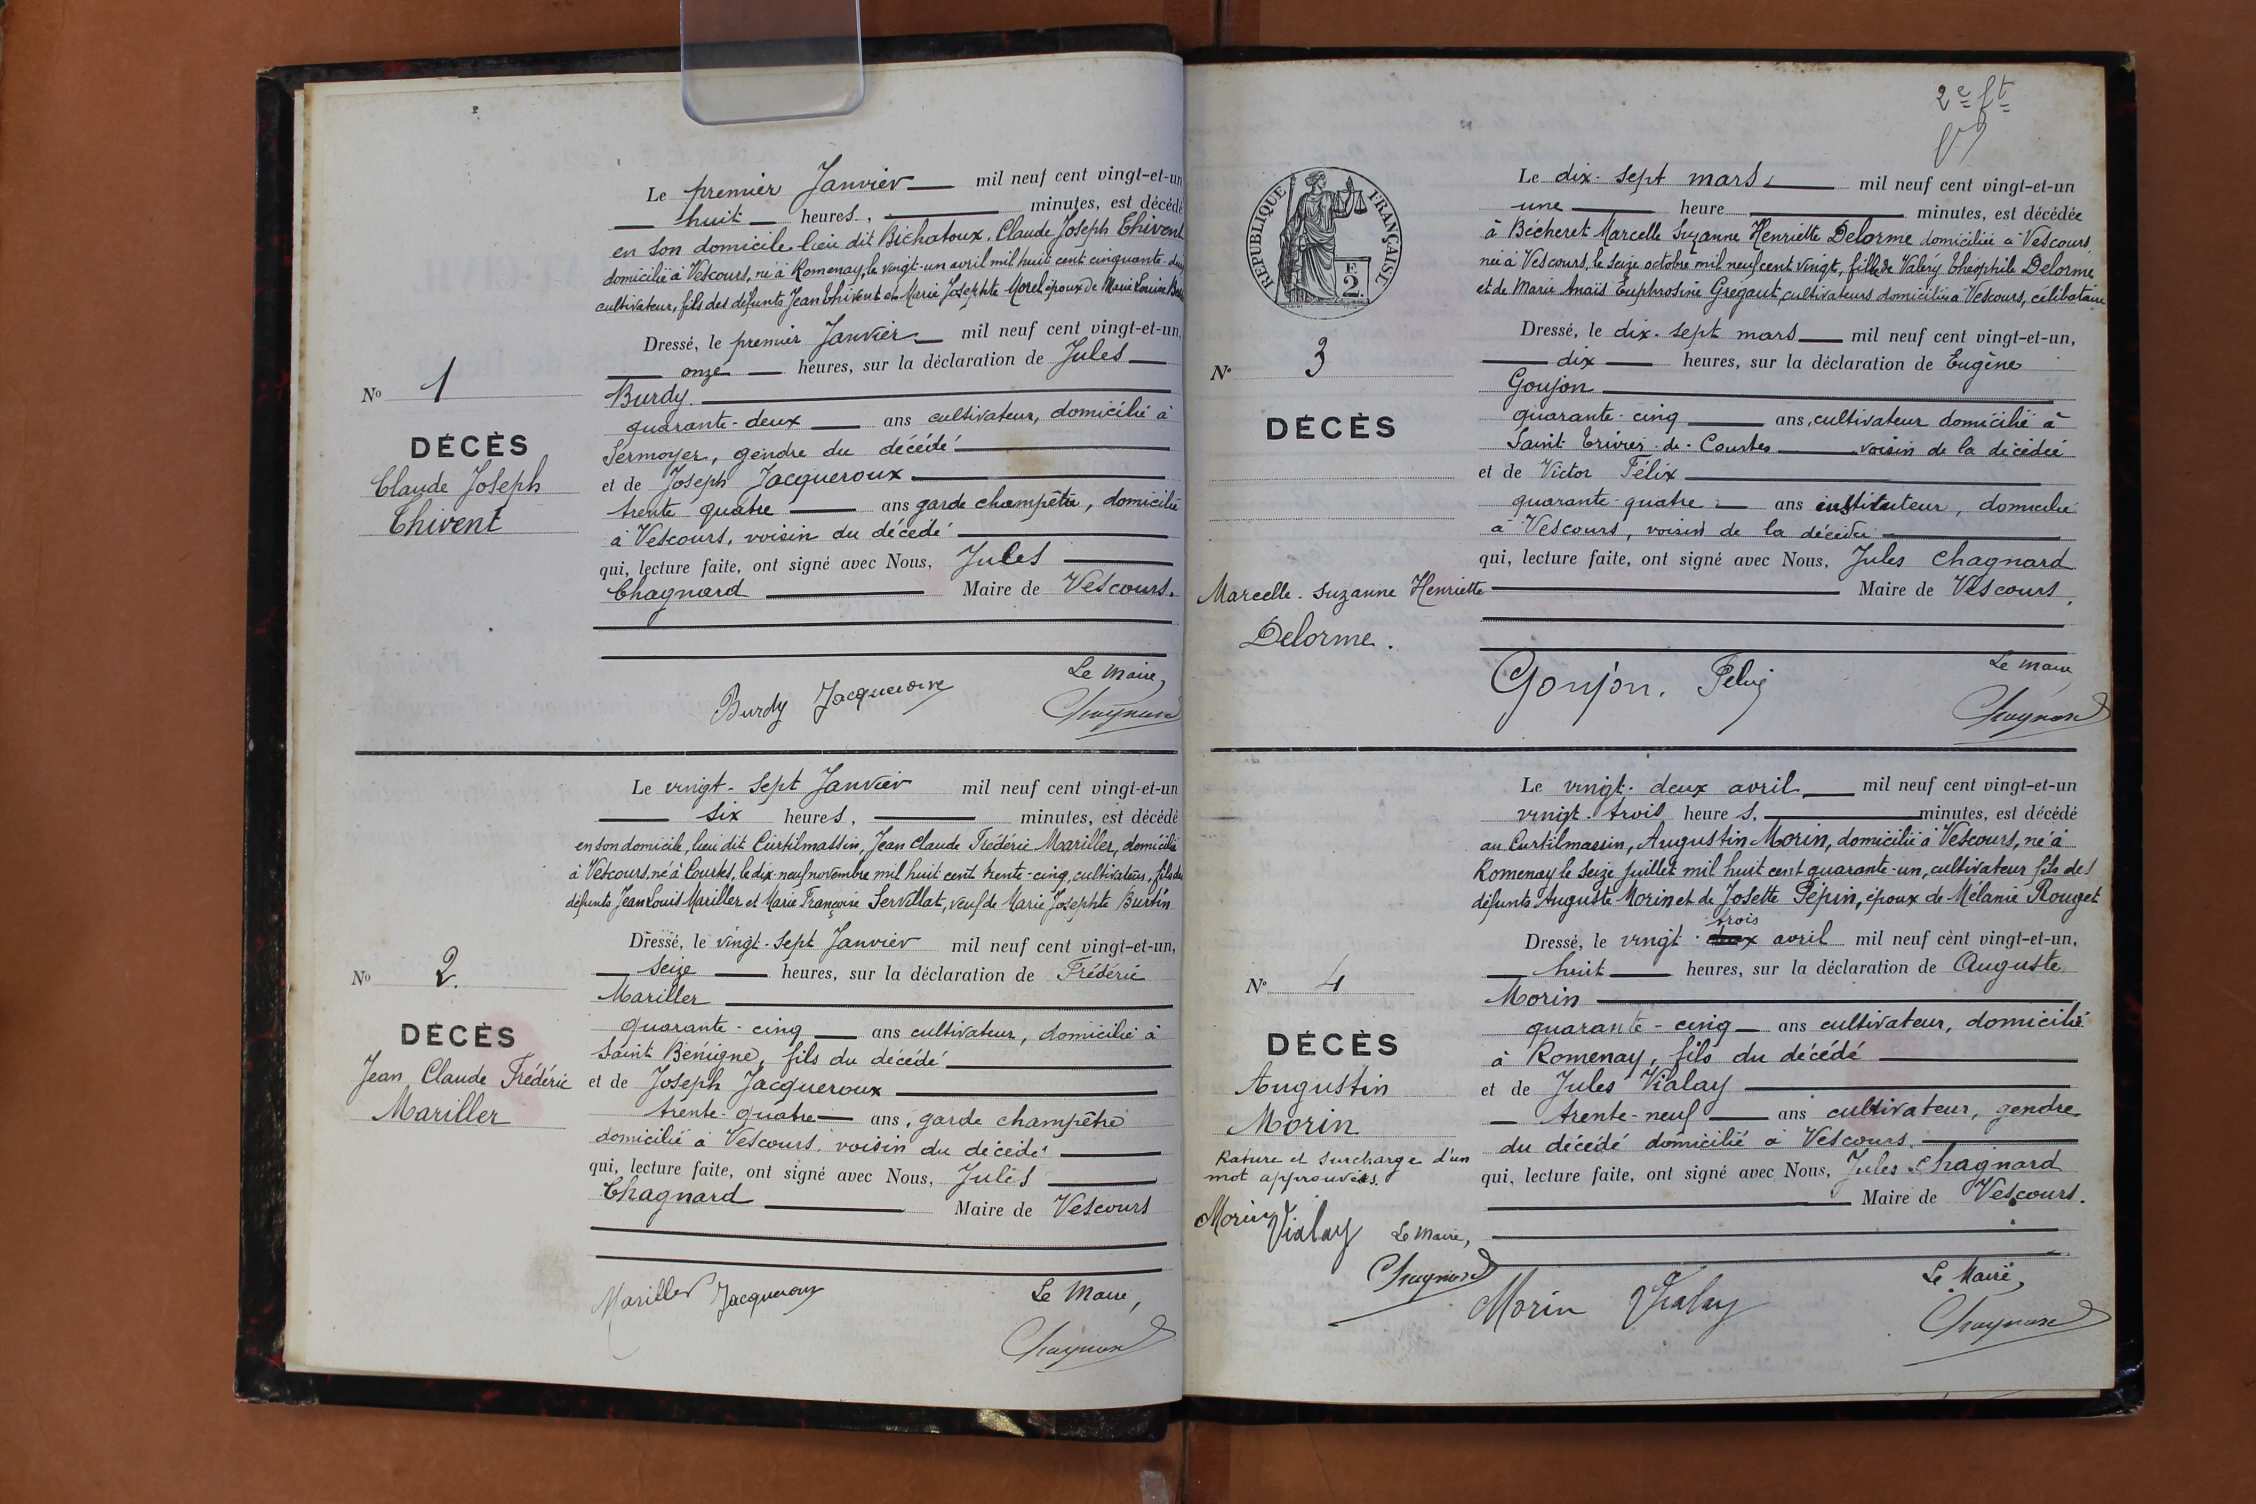 Le premier Janvier mil neuf cent vingt-et-un
huit heures, minutes, est décédé
en son domicile lieu dit Bichatoux, Claude Joseph Thivent
domicilié à Vescours, né à Romenay, le vingt-un avril mil huit cent cinquante-
cultivateur, fils des défunts Jean Thivent et Marie Josephte Morel époux de Marie Louise
Dressé, le premier Janvier mil neuf cent vingt-et-un,
onze heures, sur la déclaration de Jules
Burdy
quarante-deux ans cultivateur, domicilié à
Sermoyer, gendre du décédé
et de Joseph Jacqueroux
trente quatre ans garde champêtre, domicilié
à Vescours, voisin du décédé
qui, lecture faite, ont signé avec Nous, Jules
Chagnard Maire de Vescours.
No 1
DÉCÈS
Claude Joseph
Thivent
Le Maire,
Burdy Jacqueroux
Chagnard
Le vingt-sept Janvier mil neuf cent vingt-et-un
six heures, minutes, est décédé
en son domicile, lieu dit Curtilmassin, Jean Claude Frédéric Mariller, domicilié
à Vescours, né à Courtes, le dix-neuf novembre mil huit cent trente-cinq, cultivateur, fils des
défunts Jean Louis Mariller et Marie Françoise Servillat, veuf de Marie Josephte Burtin
Dressé, le vingt-sept Janvier mil neuf cent vingt-et-un,
seize heures, sur la déclaration de Frédéric
Mariller
quarante-cinq ans cultivateur, domicilié à
Saint Bénigne, fils du décédé
et de Joseph Jacqueroux
trente-quatre ans, garde champêtre
domicilié à Vescours, voisin du décédé
qui, lecture faite, ont signé avec Nous, Jules
Chagnard Maire de Vescours
No 2.
DÉCÈS
Jean Claude Frédéric
Mariller
Mariller Jacqueroux Le Maire,
Chagnard
2e ft
RÉPUBLIQUE FRANÇAISE
E
2
Le dix-sept mars mil neuf cent vingt-et-un
une heure minutes, est décédée
à Bécheret Marcelle Suzanne Henriette Delorme domiciliée à Vescours
née à Vescours, le seize octobre mil neuf cent vingt, fille de Valéry Théophile Delorme
et de Marie Anaïs Euphrosine Grégaut, cultivateurs domiciliés à Vescours, célibataire
Dressé, le dix-sept mars mil neuf cent vingt-et-un,
dix heures, sur la déclaration de Eugène
Goujon
quarante-cinq ans, cultivateur domicilié à
Saint-Trivier-de-Courtes voisin de la décédée
et de Victor Félix
quarante-quatre ans instituteur, domicilié
à Vescours, voisin de la décédée
qui, lecture faite, ont signé avec Nous, Jules Chagnard
Maire de Vescours.
N° 3
DÉCÈS
Marcelle-Suzanne Henriette
Delorme.
Goujon. Félix Le Maire
Chagnard
Le vingt-deux avril mil neuf cent vingt-et-un
vingt-trois heures, minutes, est décédé
au Curtilmassin, Augustin Morin, domicilié à Vescours, né à
Romenay le seize juillet mil huit cent quarante-un, cultivateur fils des
défunts Auguste Morin et de Josette Pépin, époux de Mélanie Rouget
trois
Dressé, le vingt-deux avril mil neuf cent vingt-et-un,
huit heures, sur la déclaration de Auguste
Morin
quarante-cinq ans cultivateur, domicilié
à Romenay, fils du décédé
et de Jules Vialay
trente-neuf ans cultivateur, gendre
du décédé domicilié à Vescours.
qui, lecture faite, ont signé avec Nous, Jules Chagnard
Maire de Vescours.
N° 4
DÉCÈS
Augustin
Morin
Rature et surcharge d'un
mot approuvées.
Morin Vialay Le Maire,
Chagnard
Morin Vialay Le Maire,
Chagnard